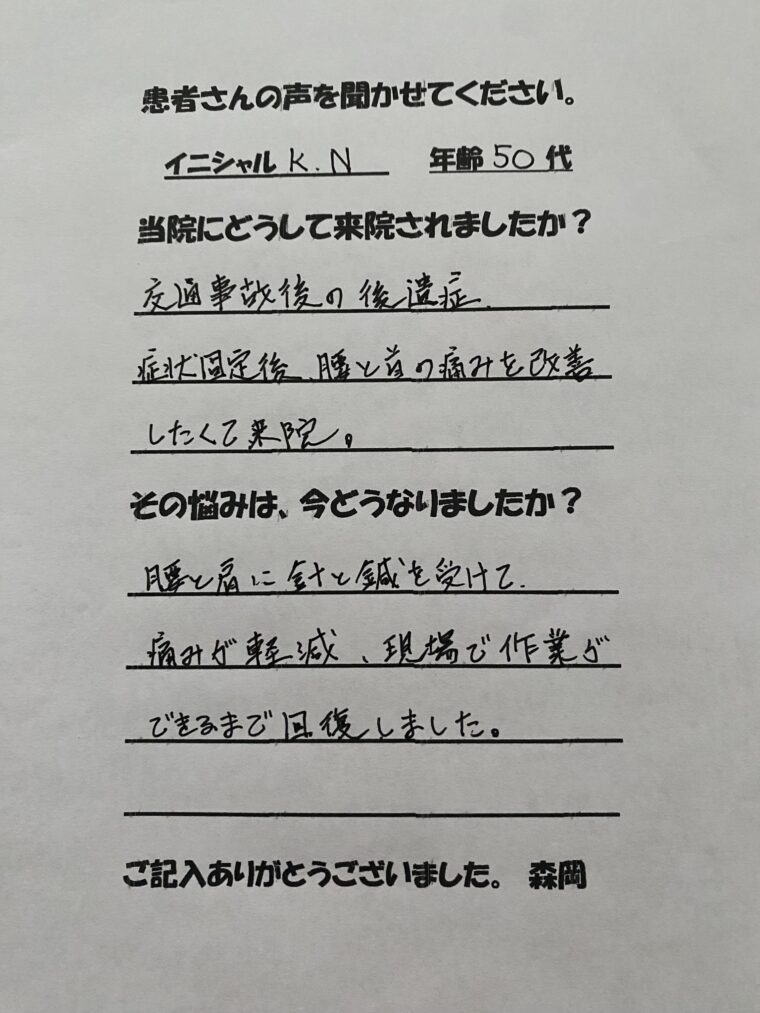 患者さんの声を聞かせてください。
イニシャル K.N 年齢 50 代
当院にどうして来院されましたか？
交通事故後の後遺症、
症状固定後、腰と首の痛みを改善
したくて来院。
その悩みは、今どうなりましたか？
腰と肩に針と鍼を受けて、
痛みが軽減、現場で作業が
できるまで回復しました。
ご記入ありがとうございました。 森岡